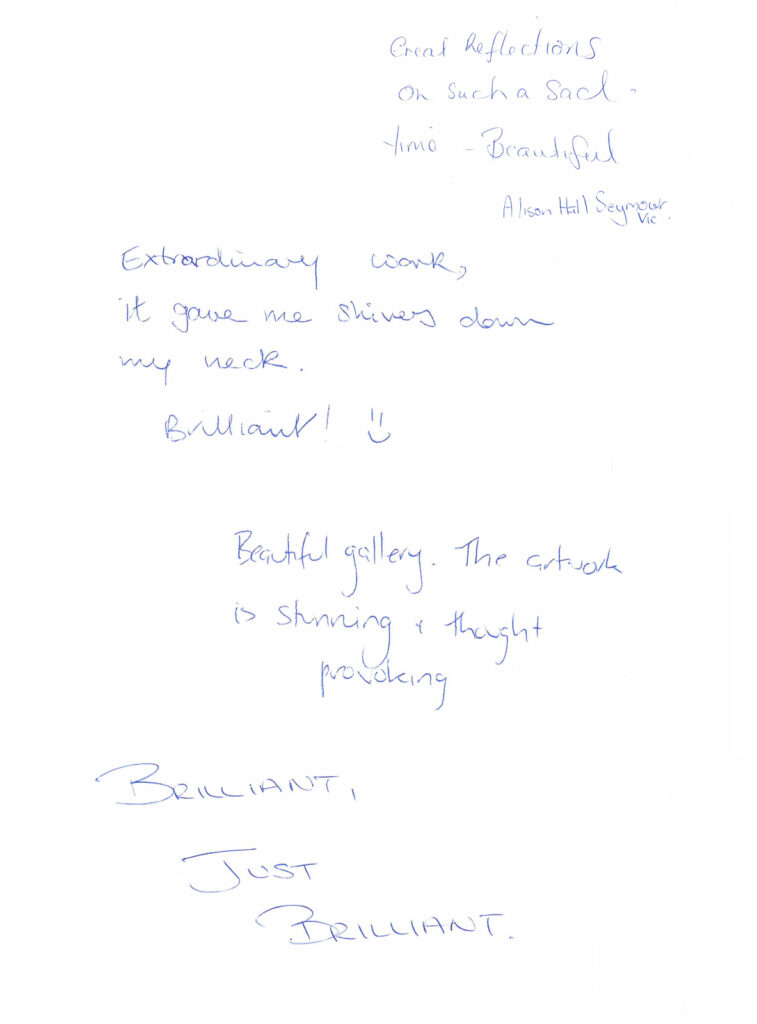 Great Reflections
on such a sad
time - Beautiful
Alison Hall Seymour
Vic.
Extraordinary work,
it gave me shivers down
my neck.
Brilliant! :)
Beautiful gallery. The artwork
is stunning & thought
provoking
BRILLIANT,
JUST
BRILLIANT.